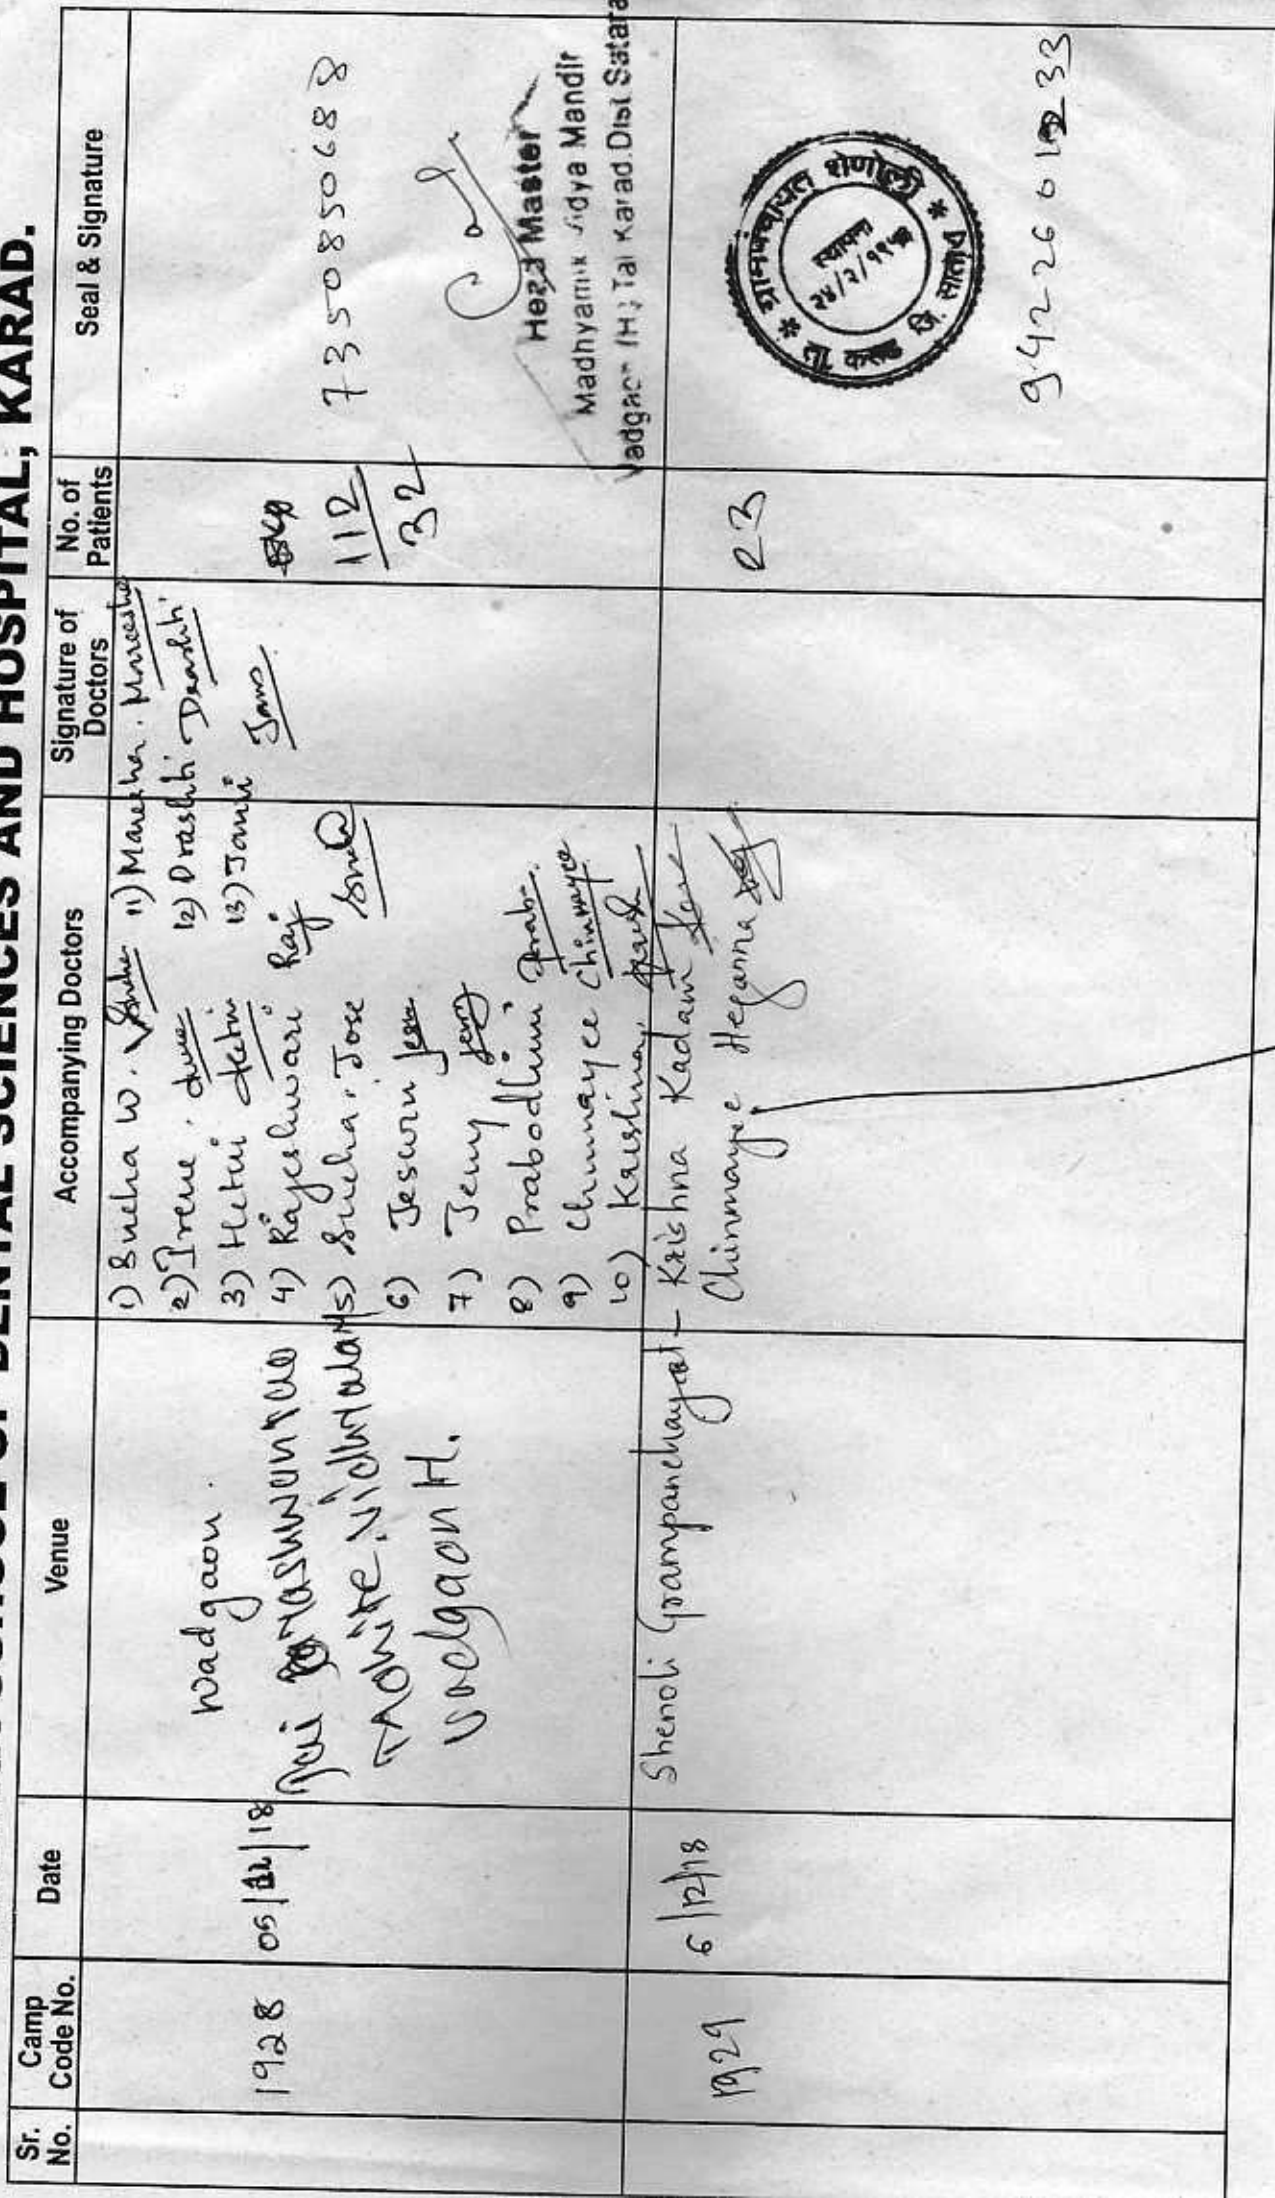 SCHOOL OF DENTAL SCIENCES AND HOSPITAL, KARAD.
Sr. No.
Camp Code No.
Date
Venue
Accompanying Doctors
Signature of Doctors
No. of Patients
Seal & Signature
1928
05/12/18
Wadgaon.
Jai
Vadgaon H.
1) Sneha W.
2) Irene.
3) Hetvi Hetvi
4) Rajeshwari Raj
5) Sneha. Jose Sneha
6) Jeswin
7) Jeny Jeny
8) Prabodhini Prab.
9) Chinmayee Chinmayee
10) Krishna
11) Mareesha.
12) Drashti Drashti
13) Janvi
112
32
7350850688
Head Master
Madhyamik Vidya Mandir
Vadgaon (H) Tal Karad. Dist Satara
1929
6/12/18
Shenoli Grampanchayat -
Krishna Kadam
Chinmayee Heganna
23
ग्रामपंचायत शेणोली
स्थापना
ता. कराड जि. सातारा